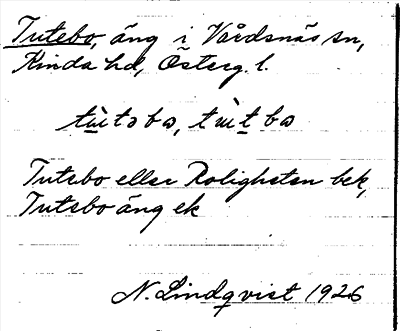 Tutebo, äng i Vårdsnäs sn,
Kinda hd, Österg. l.
tu̇̀təbo, tu̇̀tbo
Tutebo eller Roligheten bek,
Tutebo äng ek
N. Lindqvist 1926